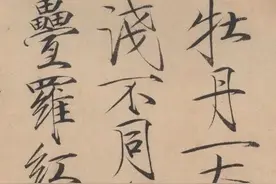 牡丹一
淺不同
疊羅紅